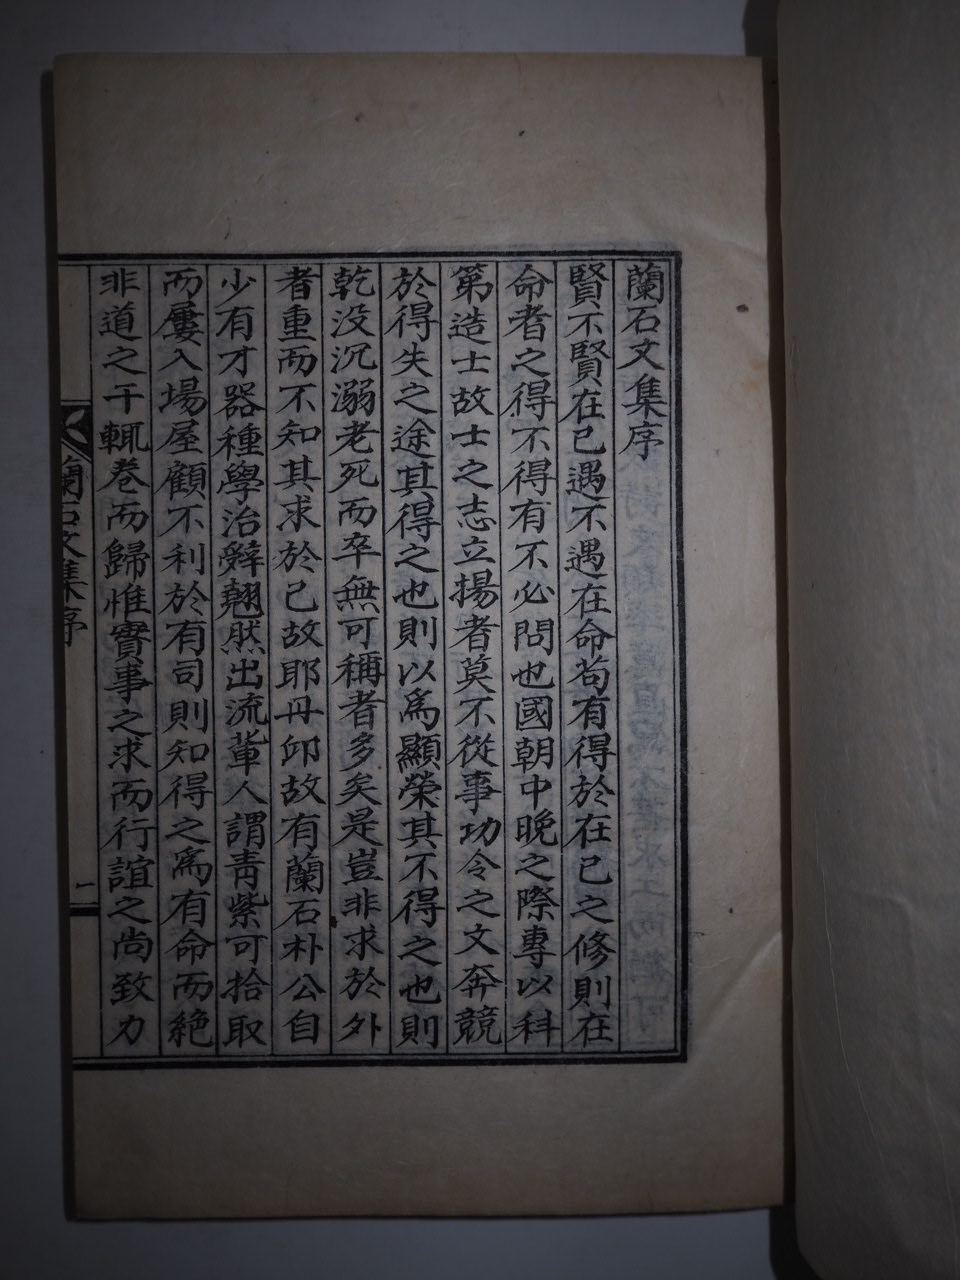 蘭石文集序
賢不賢在己遇不遇在命苟有得於在己之修則在
命者之得不得有不必問也國朝中晚之際專以科
第造士故士之志立揚者莫不從事功令之文奔競
於得失之途其得之也則以爲顯榮其不得之也則
乾没沉溺老死而卒無可稱者多矣是豈非求於外
者重而不知其求於己故耶丹邱故有蘭石朴公自
少有才器種學治辭翹然出流軰人謂靑紫可拾取
而屢入場屋顧不利於有司則知得之爲有命而絶
非道之干輒卷而歸惟實事之求而行誼之尙致力
蘭石文集序
一